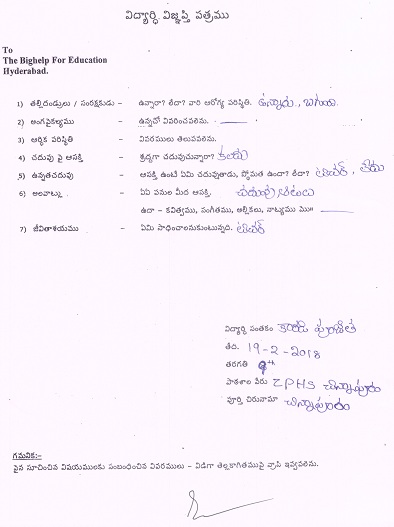 విద్యార్ధి విజ్ఞప్తి పత్రము
To
The Bighelp For Education
Hyderabad.
1) తల్లిదండ్రులు / సంరక్షకుడు - ఉన్నారా? లేదా? వారి ఆరోగ్య పరిస్థితి. ఉన్నారు,
2) అంగవైకల్యము - ఉన్నచో వివరించవలెను.
3) ఆర్ధిక పరిస్థితి - వివరములు తెలుపవలెను.
4) చదువు పై ఆసక్తి - శ్రద్ధగా చదువుచున్నారా?
5) ఉన్నతచదువు - ఆసక్తి ఉంటే ఏమి చదువుతాడు, స్తోమత ఉందా? లేదా? టీచర్,
6) అలవాట్లు - ఏఏ పనుల మీద ఆసక్తి.
ఉదా - కవిత్వము, సంగీతము, అల్లికలు, నాట్యము మొ॥
7) జీవితాశయము - ఏమి సాధించాలనుకుంటున్నది. టీచర్
విద్యార్ధి సంతకం
తేది. 19-2-2018
తరగతి 9th
పాఠశాల పేరు ZPHS చిన్నాపురం
పూర్తి చిరునామా చిన్నాపురం
గమనిక:-
పైన సూచించిన విషయములకు సంబంధించిన వివరములు - విడిగా తెల్లకాగితముపై వ్రాసి ఇవ్వవలెను.